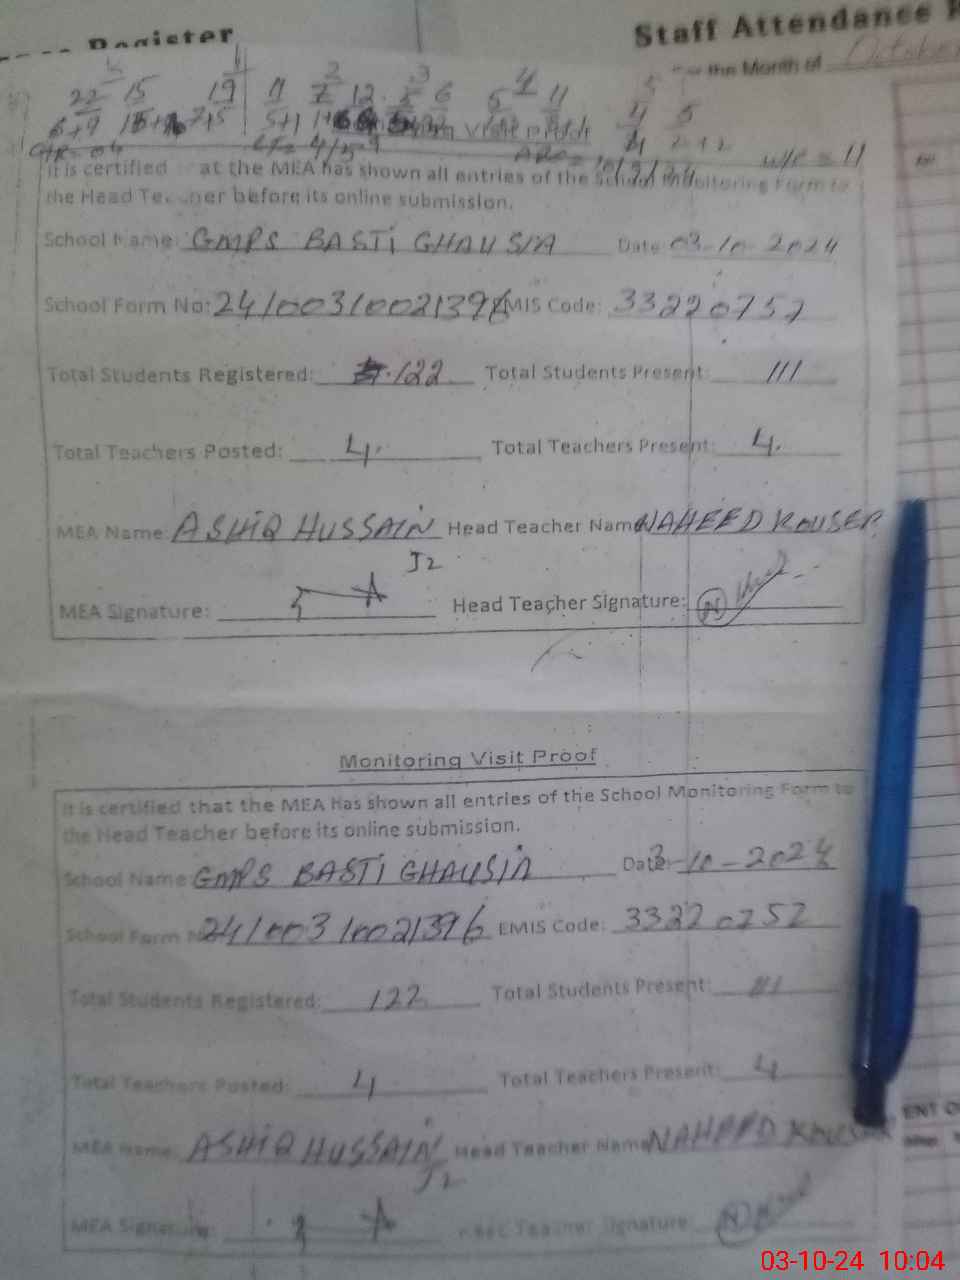 Register
Staff Attendance
the Month of October
22 15 19
It is certified at the MEA has shown all entries of the School Monitoring Form to
the Head Teacher before its online submission.
School Name: GMPS BASTI GHAUSIA Date 03-10-2024
School Form No: 24100310021396 EMIS Code: 33220757
Total Students Registered: 122 Total Students Present: 111
Total Teachers Posted: 4. Total Teachers Present: 4.
MEA Name: ASHIQ HUSSAIN Head Teacher Name NAHEED KOUSER
J2
MEA Signature: Head Teacher Signature:
Monitoring Visit Proof
It is certified that the MEA has shown all entries of the School Monitoring Form to
the Head Teacher before its online submission.
School Name: GMPS BASTI GHAUSIA Date: 3-10-2024
School Form No 24100310021396 EMIS Code: 33220757
Total Students Registered: 122 Total Students Present: 111
Total Teachers Posted: 4 Total Teachers Present: 4
MEA Name: ASHIQ HUSSAIN Head Teacher Name NAHEED KOUSER
J2
MEA Signature: Head Teacher Signature:
03-10-24 10:04